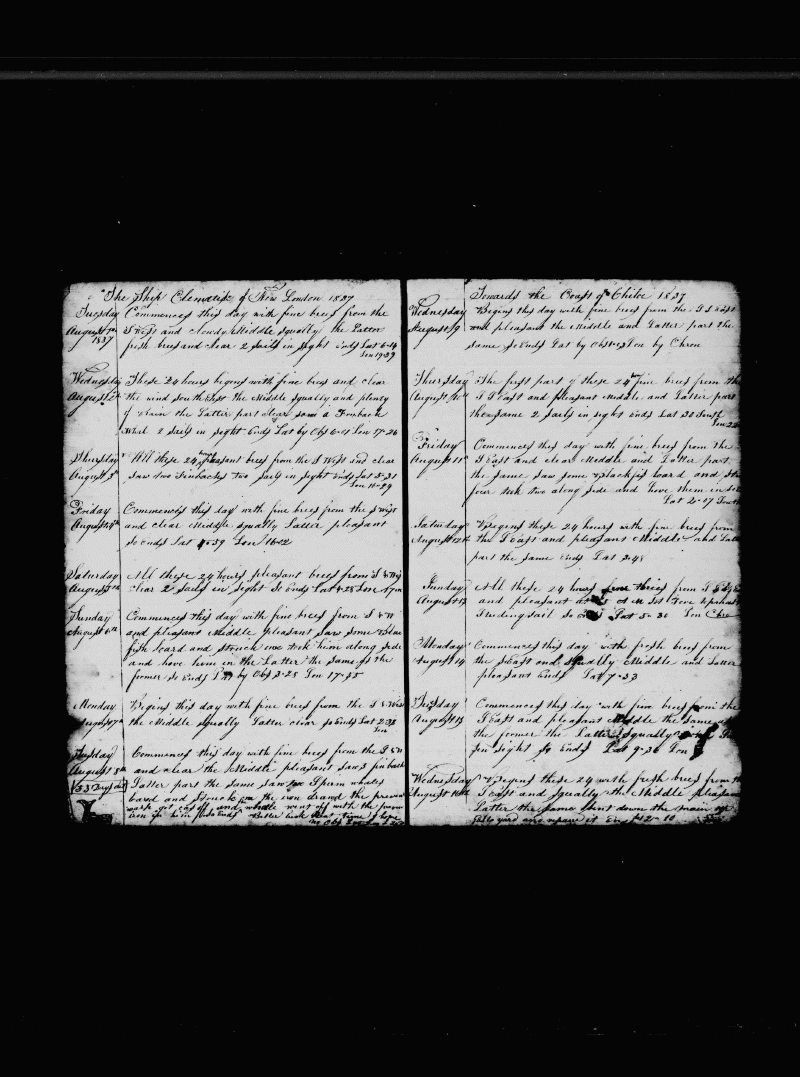 The Ship Clematis of New London 1837
Tuesday Commences this day with fine brees from the
August 1837 S West and clowdy Middle squally the Latter
fresh brees and clear 2 sails in sight Ends Lat 6-14
Lon 19-39
Wednesday These 24 hours begins with fine brees and clear
August 2th the wind South West the Middle squally and plenty
of rain the Latter part clear saw a Finback
Whale 2 sails in sight Ends Lat by Obs Lon 17-26
Thursday All these 24 hours pleasant brees from the S West and clear
August 3th saw two Finbacks two sails in sight Ends Lat 5-31
Lon 16-29
Friday Commences this day with fine brees from the S West
August 4th and clear Middle squally Latter pleasant
So ends Lat 4-59 Lon 16-02
Saturday All these 24 hours pleasant brees from S & W
August 5th clear 2 sails in sight So Ends Lat 4-28 Lon
Sunday Commences this day with fine brees from S & W
August 6th and pleasant Middle pleasant saw some Black
fish loard and struck one took him along side
and hove him in the Latter the same as the
former So Ends Lat by Obs 3-25 Lon 17-35
Monday Begins this day with fine brees from the S & West
August 7th the Middle squally Latter clear So Ends Lat 2-38
Lon
Tuesday Commences this day with fine brees from the S & W
August 8th and clear the Middle pleasant saw finback
33 Days out Latter part the same saw Sperm whales
loard and Struck the iron drawd the
went off with the
iron in him So Ends Better luck next time I hope
Towards the Coast of Chiloe 1837
Wednesday Begins this day with fine brees from the S East
August 9 and pleasant the Middle and Latter part the
same So Ends Lat by Obs Lon by Chron
Thursday The first part of these 24 fine brees from the
August 10th S East and pleasant Middle and Latter part
the same 2 sails in sight Ends Lat 30 South
Lon
Friday Commences this day with fine brees from the
August 11th S East and clear Middle and Latter part
the same saw some Blackfish loard and
four took two along side and hove them in
Lat 2-17 South
Saturday Begins these 24 hours with fine brees from
August 12th the S East and pleasant Middle and Latter
part the same Ends Lat 3-48
Sunday All these 24 hours fine brees from S East
August 13 and pleasant
Studingsail So Lat 5-31 Lon Chro
Monday Commences this day with fresh brees from
August 14 the S East and squally Middle and Latter
pleasant Ends Lat 7-33
Tuesday Commences this day with fine brees from the
August 15 S East and pleasant Middle the same as
the former the Latter squally
in sight So Ends Lat 9-36 Lon
Wednesday Begins these 24 with fresh brees from
August 16th S East and squally the Middle pleasant
Latter the same Sent down the main
yard and repair it